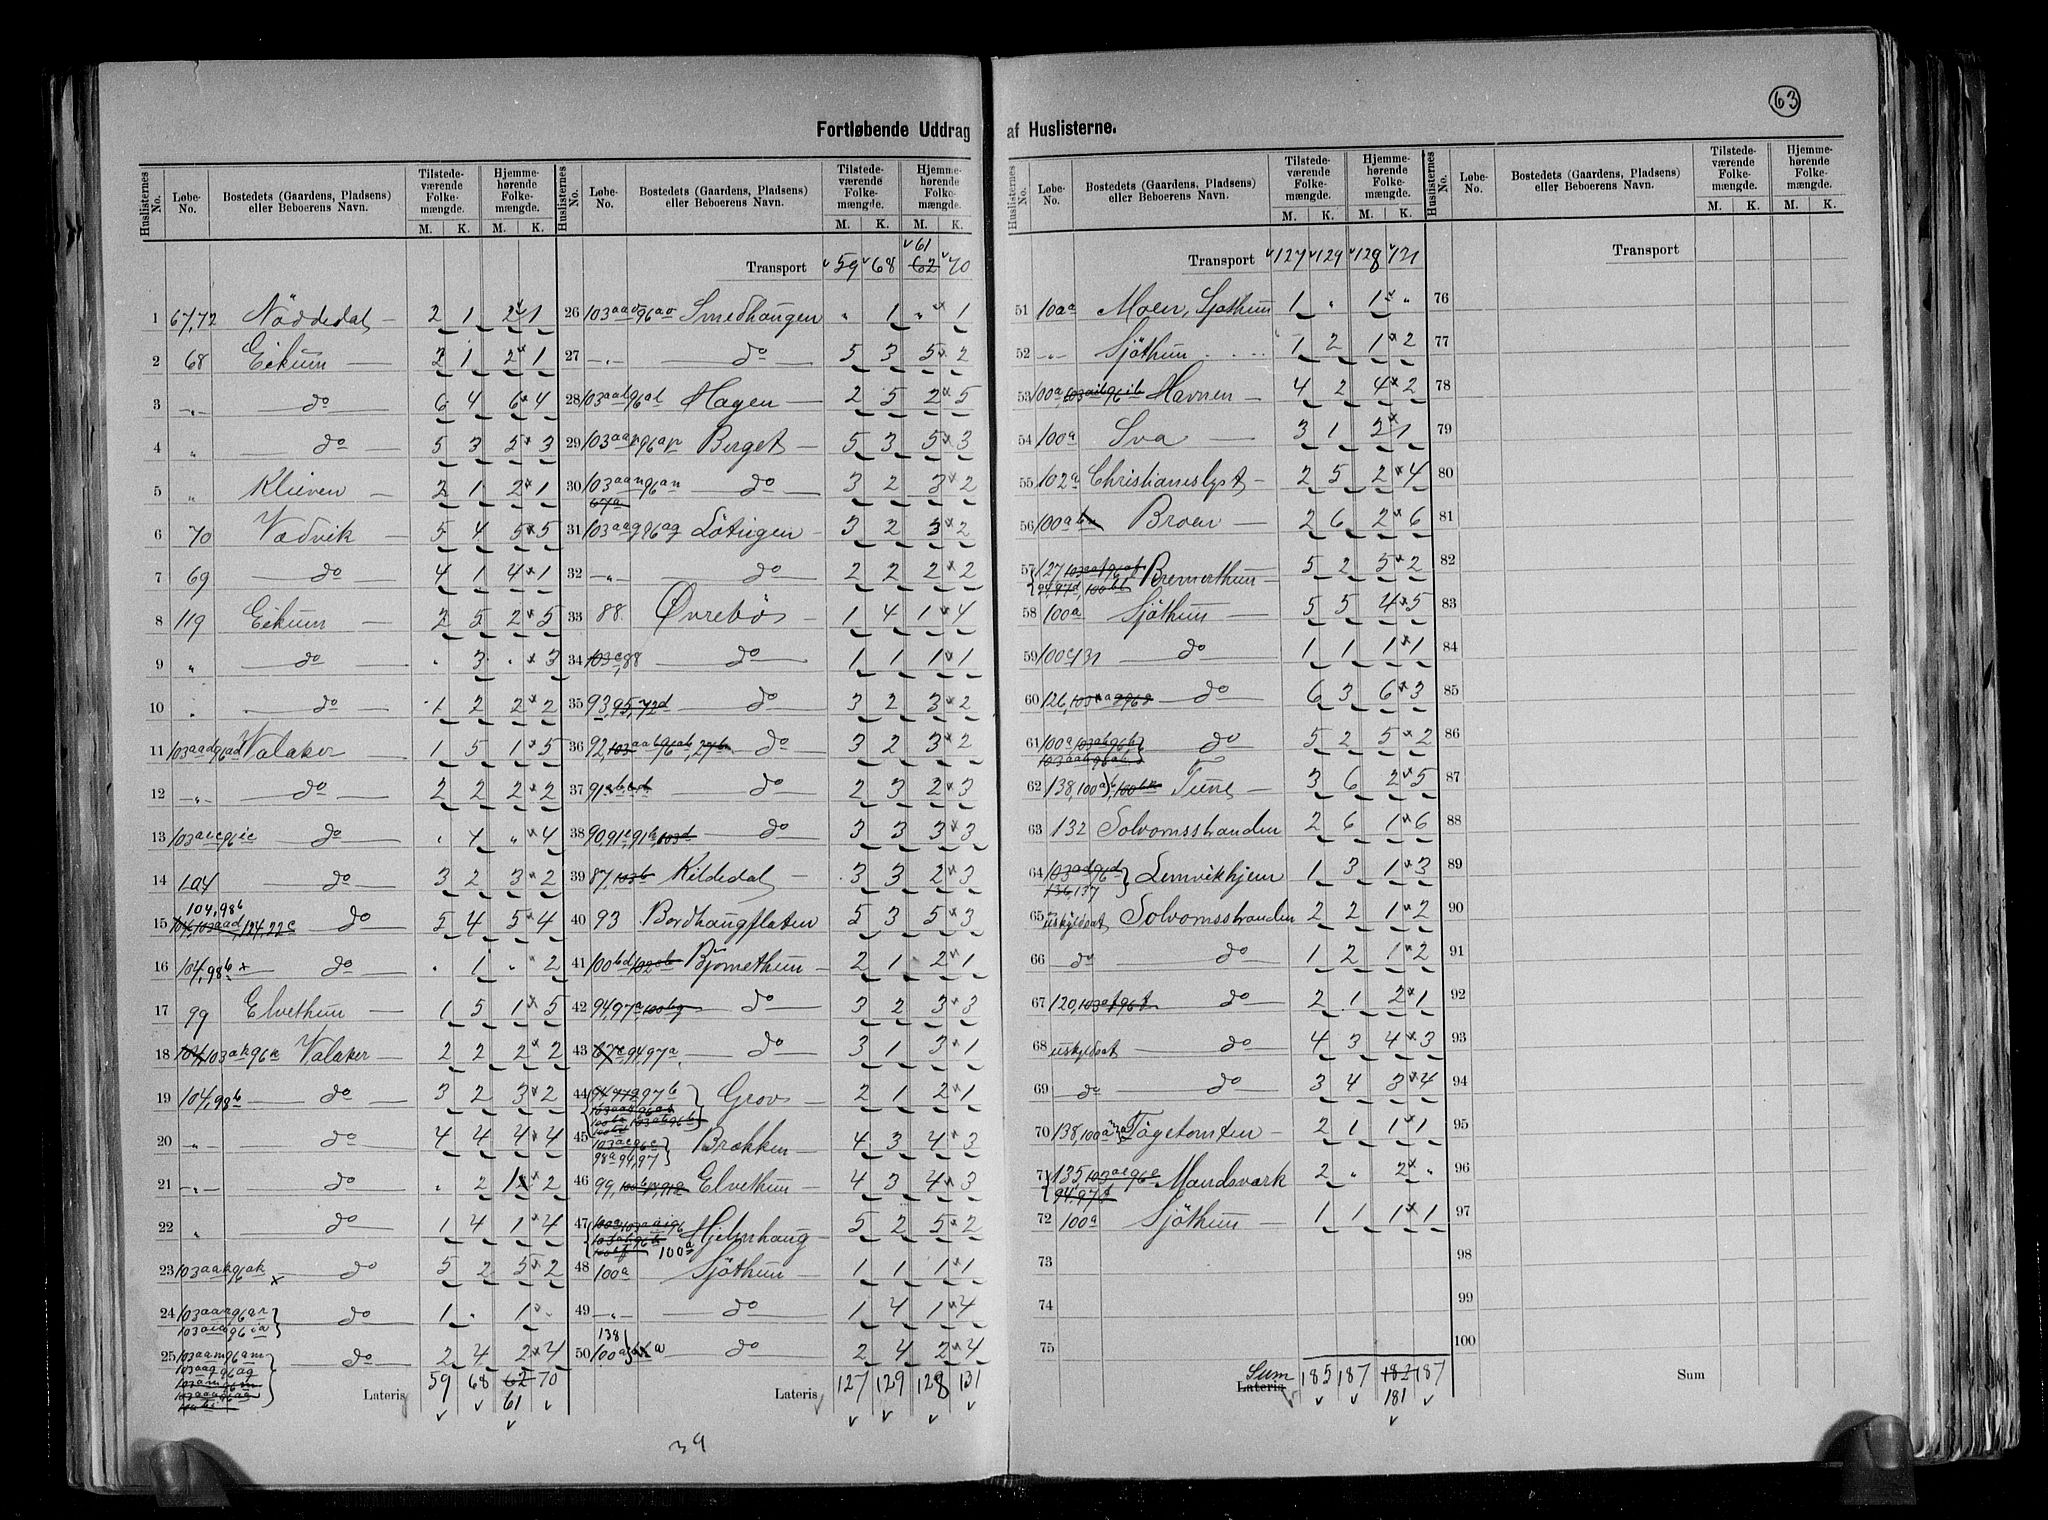 63
Fortløbende Uddrag af Huslisterne.
Huslisternes No. Løbe-No. Bostedets (Gaardens, Pladsens) eller Beboerens Navn. Tilstedeværende Folkemængde. Hjemmehørende Folkemængde.
M. K. M. K.
1 67,72 Nöddedal 2 1 2 1
2 68 Eikum 2 1 2 1
3 " do 6 4 6 4
4 " do 5 3 5 3
5 " Klieven 2 1 2 1
6 70 Vedvik 5 4 5 5
7 69 do 4 1 4 1
8 119 Eikum 2 5 2 5
9 " do . 3 . 3
10 . do 1 2 2 2
11 103aad96ad Valaker 1 5 1 5
12 " do 2 2 2 2
13 103aic96ic do . 4 " 4
14 104 do 3 2 3 2
15 104,98b do 5 4 5 4
16 104,98b do . 1 . 2
17 99 Elvethun 1 5 1 5
18 103ak96k Valaker 2 2 2 2
19 104,98b do 3 2 3 2
20 " do 4 4 4 4
21 " do . 2 1 2
22 " do 1 4 1 4
23 103aak96ak do 5 2 5 2
24 103aar96ar 103aia96ia do 1 . 1 .
25 103aam96am 103aag96ag do 2 4 2 4
Lateris 59 68 62 70
61
Transport 59 68 62 70
61
26 103aao96ao Smedhaugen " 1 " 1
27 " do 5 3 5 2
28 103aal96al Hagen 2 5 2 5
29 103aap96ap Berget 5 3 5 3
30 103aan96an do 3 2 3 2
67a
31 103aag96ag Lötrigen 3 2 3 2
32 " do 2 2 2 2
33 88 Øvrebös 1 4 1 4
34 103c,88 do 1 1 1 1
35 93,95,72d do 3 2 3 2
36 92,103aab96ab,27b do 3 2 3 2
37 91abcd do 2 3 2 3
38 90,91c,91b,103d do 3 3 3 3
39 87,103b Kildedal 3 3 2 3
40 93 Bordhaugflaten 5 3 5 3
41 100bd Bjørnethun 2 1 2 1
42 94,97a,100bg do 3 2 3 3
43 94,97a do 3 1 3 1
44 97b Grov 2 1 2 1
45 103ae96e 98a94,97 Brækken 4 3 4 3
46 99 Elvethun 4 3 4 3
47 100a Hjelmhaug 5 2 5 2
48 100a Sjöthun 1 1 1 1
49 " do 1 4 1 4
50 138 100a a do 2 4 2 4
Lateris 127 129 128 131
Transport 127 129 128 131
51 100a Moen, Sjøthun 1 " 1 "
52 " Sjöthun 1 2 1 2
53 100a,103aib96ib Havnen 4 2 4 2
54 100a Sva 3 1 2 1
55 102a Christianslyst 2 5 2 4
56 100ab Broen 2 6 2 6
57 127 Bremerthun 5 2 5 2
94,97d,100bl
58 100a Sjöthun 5 5 4 5
59 100c131 do 1 1 1 1
60 126 do 6 3 6 3
61 100a,103ab96b do 5 2 5 2
62 138,100a Tune 3 6 2 5
63 132 Solvornsstranden 2 6 1 6
64 103ad96d 136,137 Lemvikhjem 1 3 1 3
65 uskyldsat Solvornsstranden 2 2 1 2
66 do do 1 2 1 2
67 120 do 2 1 2 1
68 uskyldsat do 4 3 4 3
69 do do 3 4 3 4
70 138,100a Tøgetomten 2 1 1 1
71 135,103ae96e Mandsverk 2 " 2 "
94,97b
72 100a Sjöthun 1 1 1 1
73
74
75
Sum Lateris 185 187 182 187
181
Transport
76
77
78
79
80
81
82
83
84
85
86
87
88
89
90
91
92
93
94
95
96
97
98
99
100
Sum
39